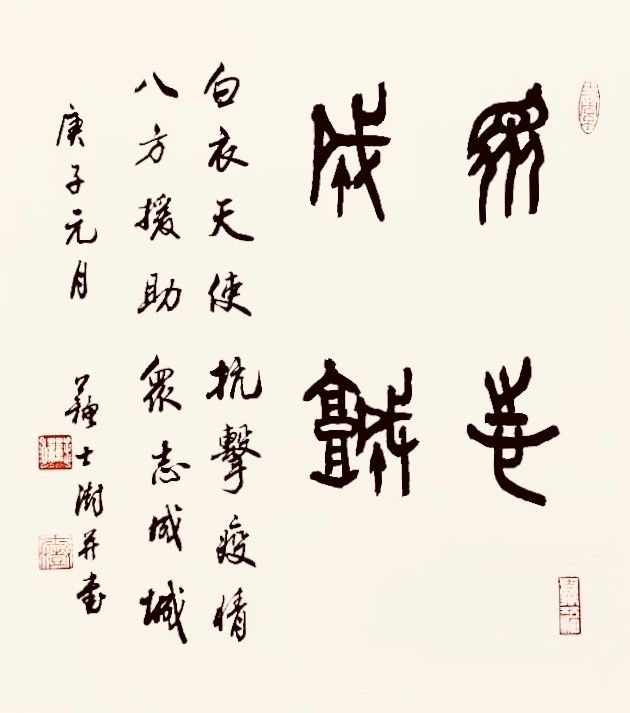 眾志
成城
白衣天使抗擊疫情
八方援助眾志成城
庚子元月 蘇士澍并書